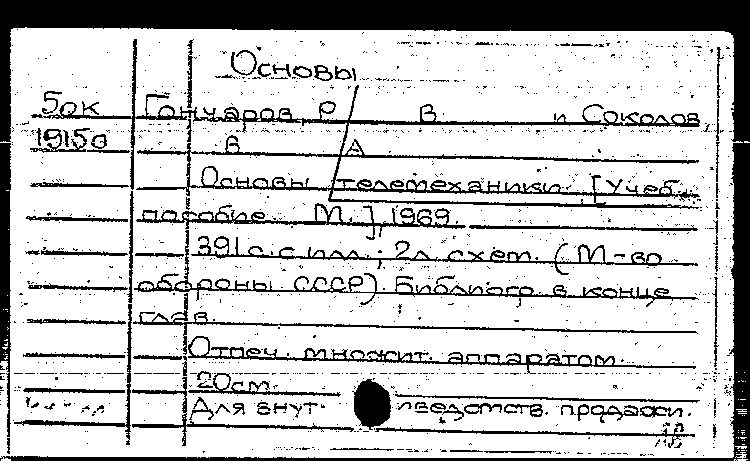 Основы
5ок Гончаров, Р В. и Соколов,
19150 В. А.
Основы телемеханики. [Учеб.
пособие. М.], 1969.
391 с. с илл.; 2 л. схем. (М-во
обороны СССР). Библиогр. в конце
глав.
Отпеч. множит. аппаратом.
20см.
Для внут- риведомств. продажи.